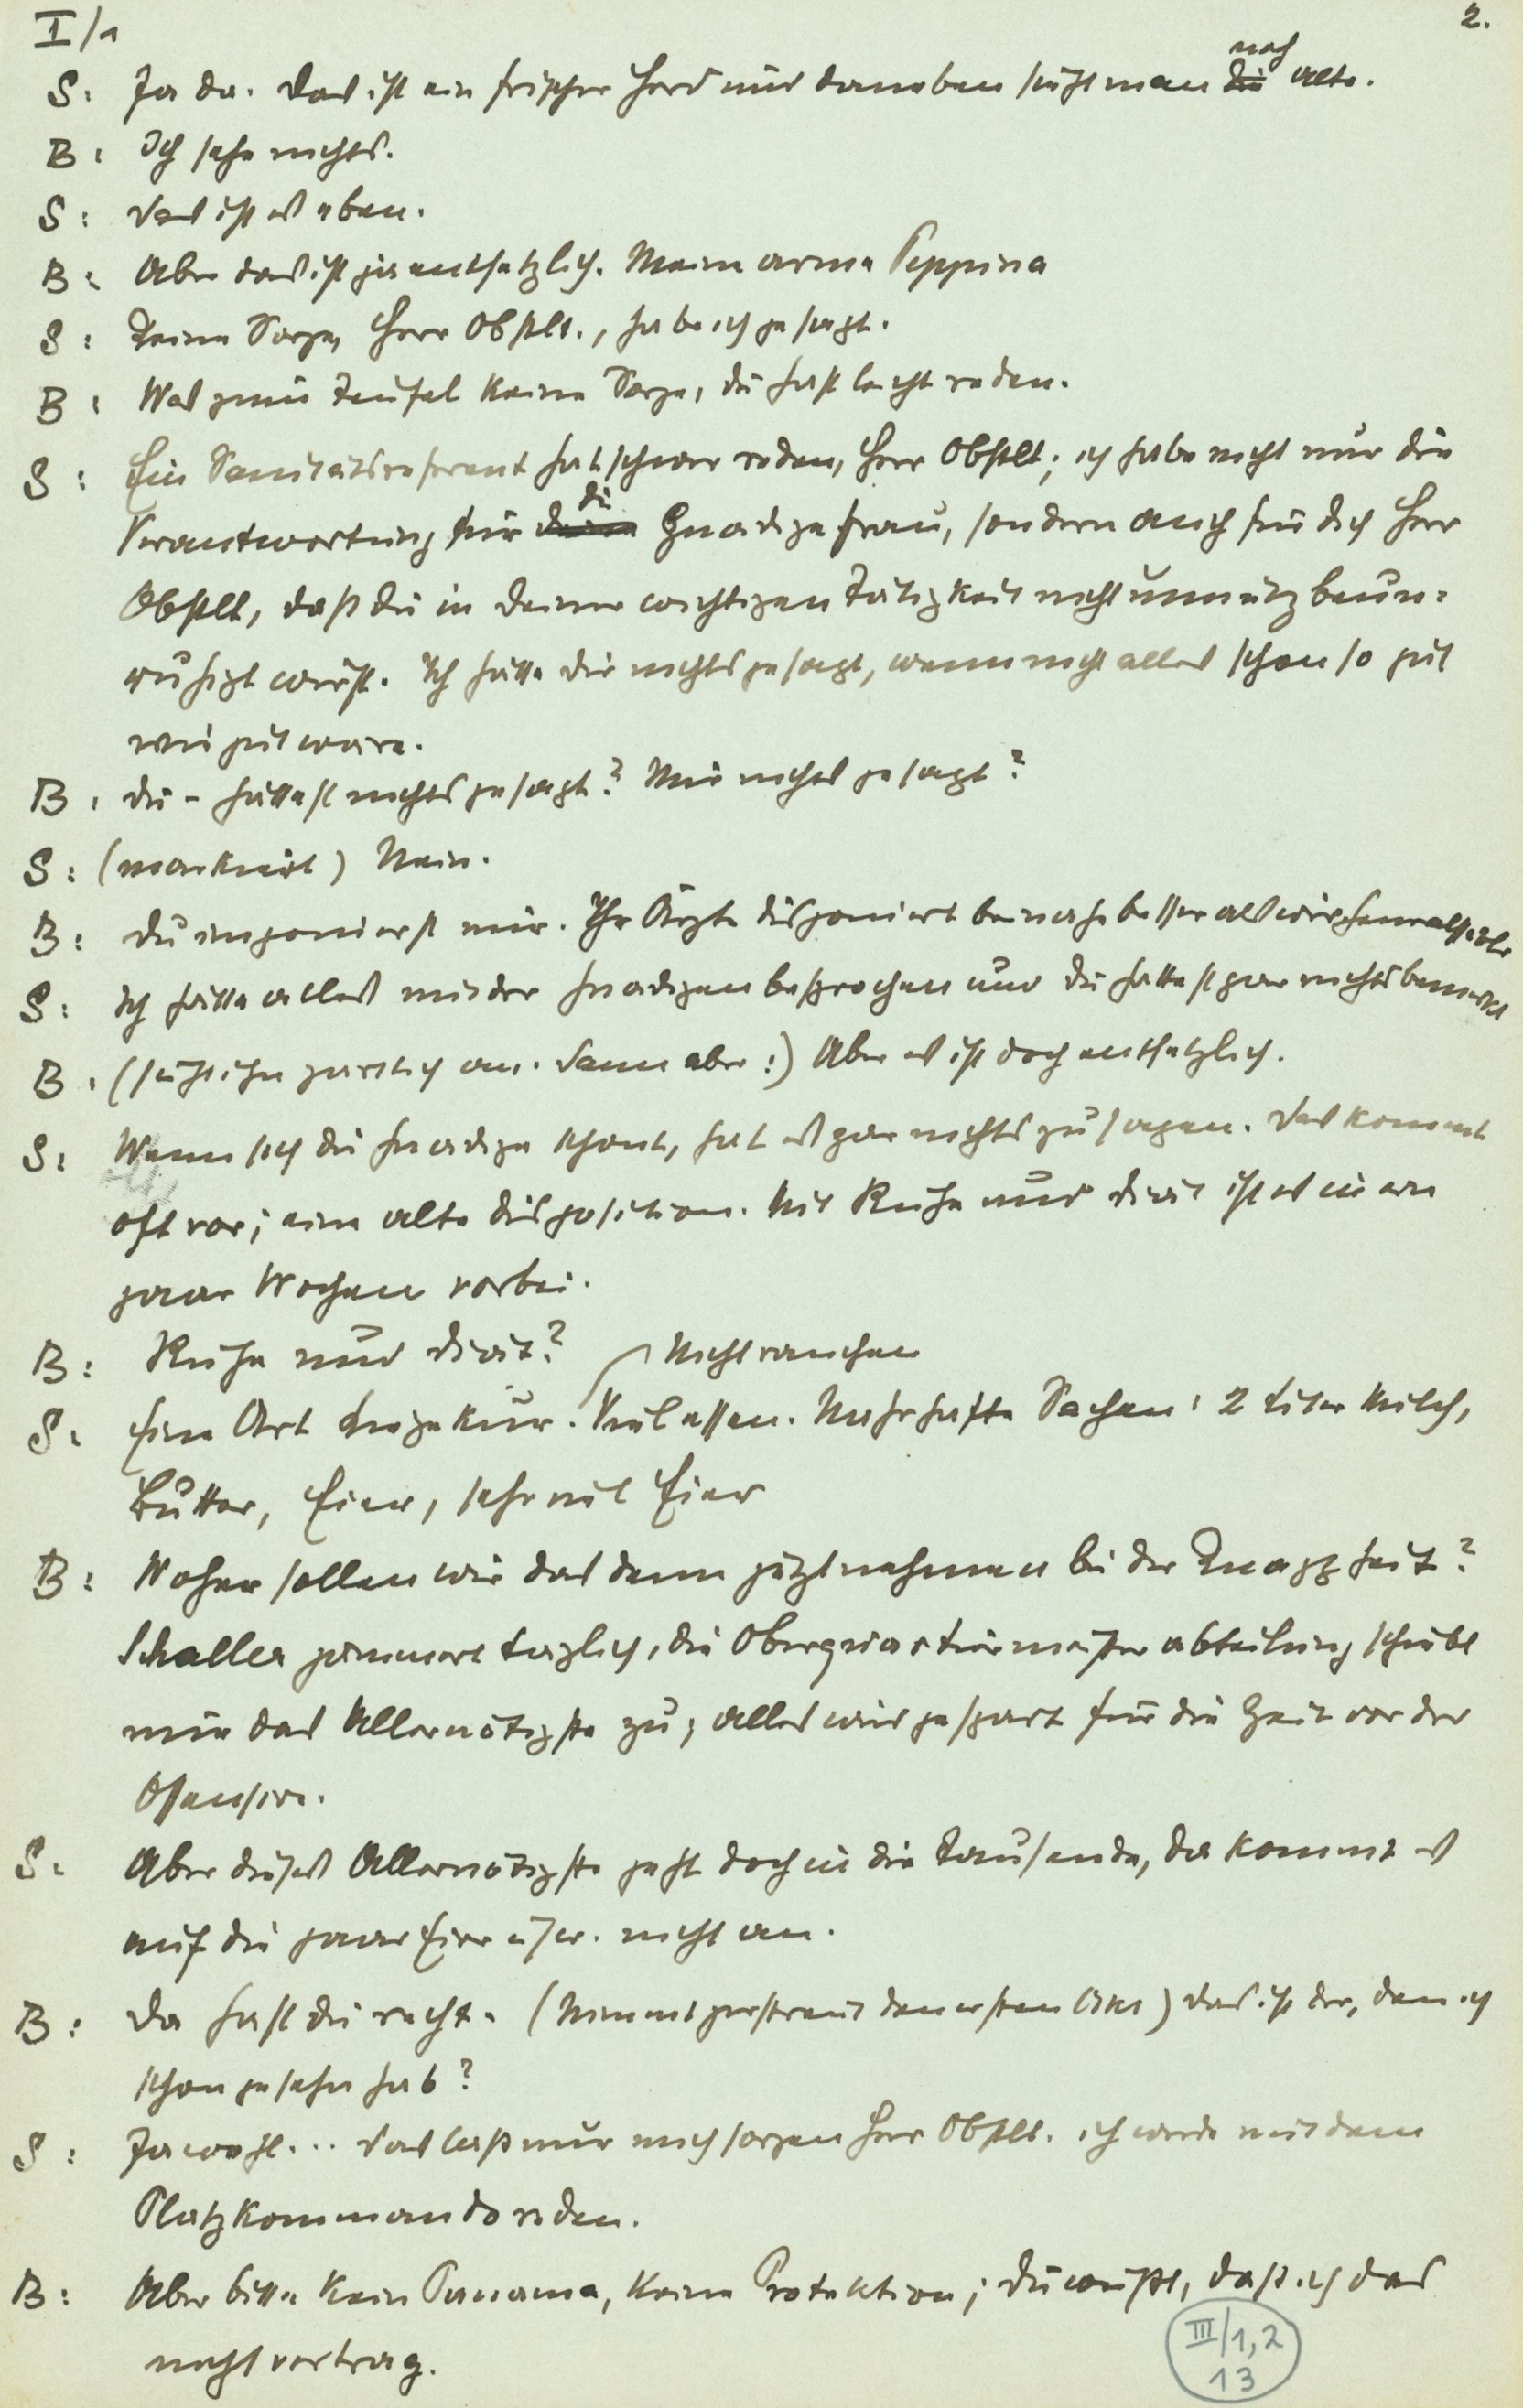 I/1
2.
S: Ja da. Das ist ein frischer Herd und daneben sieht man die noch alte.
B: Ich sehe nichts.
S: Das ist es eben.
B: Aber das ist ja entsetzlich. Meine arme Peppina
S: Keine Sorge, Herr Obstlt., habe ich gesagt.
B: Was zum Teufel keine Sorge, du hast leicht reden.
S: Ein Sanitätsreferent hat schwer reden, Herr Obstlt; ich habe nicht nur die
Verantwortung für deine die Gnädige Frau, sondern auch für dich Herr
Obstlt, daß du in deiner wichtigen Tätigkeit nicht unnütz beun=
ruhigt wirst. Ich hätte dir nichts gesagt, wenn nicht alles schon so gut
wie gut wäre.
B: Du – hättest nichts gesagt? Mir nichts gesagt?
S: (markiert) Nein.
B: Du imponierst mir. Ihr Ärzte disponiert beinahe besser als wir Generalstäbler
S: Ich hätte alles mit der Gnädigen besprochen und du hättest gar nichts bemerkt
B: (sieht ihn zärtlich an. Dann aber:) Aber es ist doch entsetzlich.
S: Wenn sich die Gnädige schont, hat es gar nichts zu sagen. Das kommt
oft vor; eine alte Disposition. Mit Ruhe und Diät ist es in ein
paar Wochen vorbei.
B: Ruhe und Diät?
Nicht rauchen
S: Eine Art Liegekur. Viel essen. Nahrhafte Sachen: 2 Liter Milch,
Butter, Eier, sehr viel Eier
B: Woher sollen wir das denn jetzt nehmen bei der Knappheit?
Schaller jammert täglich, die Oberquartiermeisterabteilung schiebt
nur das Allernötigste zu; alles wird gespart für die Zeit vor der
Offensive.
S: Aber dieses Allernötigste geht doch in die Tausende, da kommt es
auf die paar Eier usw. nicht an.
B: Da hast du recht. (Nimmt zerstreut den ersten Akt) Das ist der, den ich
schon gesehn hab?
S: Jawohl... Das laß nur mich sorgen Herr Obstlt. ich werde mit dem
Platzkommando reden.
B: Aber bitte kein Panama, keine Protektion; du weißt, daß ich das
nicht vertrag.
III/1,2
13